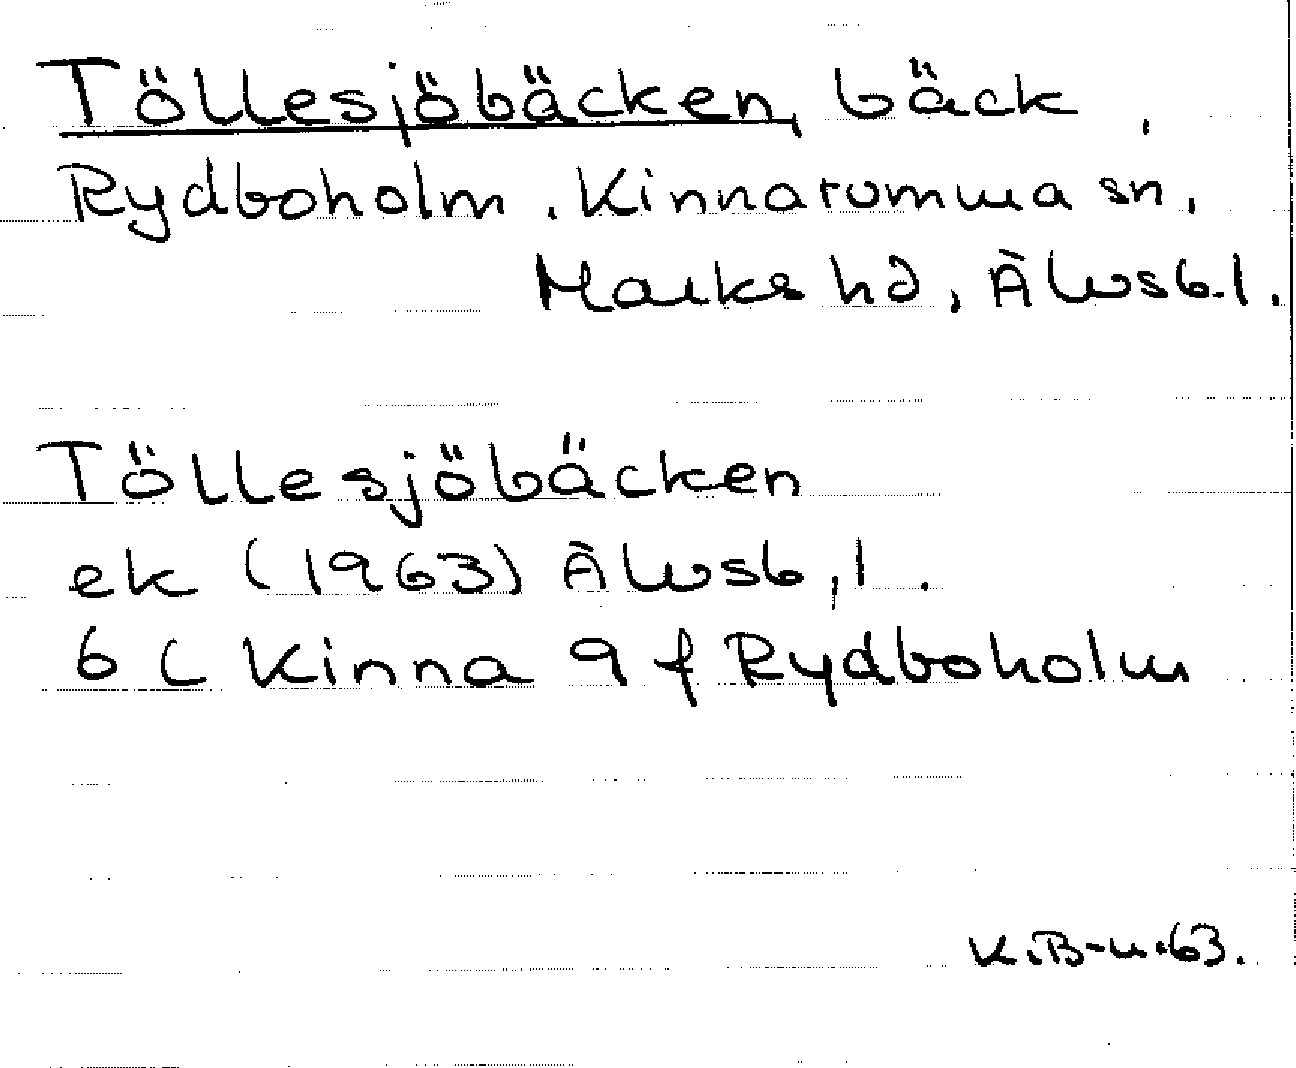 Töllesjöbäcken, bäck,
Rydboholm, Kinnarumma sn,
Marks hd, Älvsb.l.
Töllesjöbäcken
ek (1963) Älvsb,l.
6 C Kinna 9 f Rydboholm
K.B-n.63.